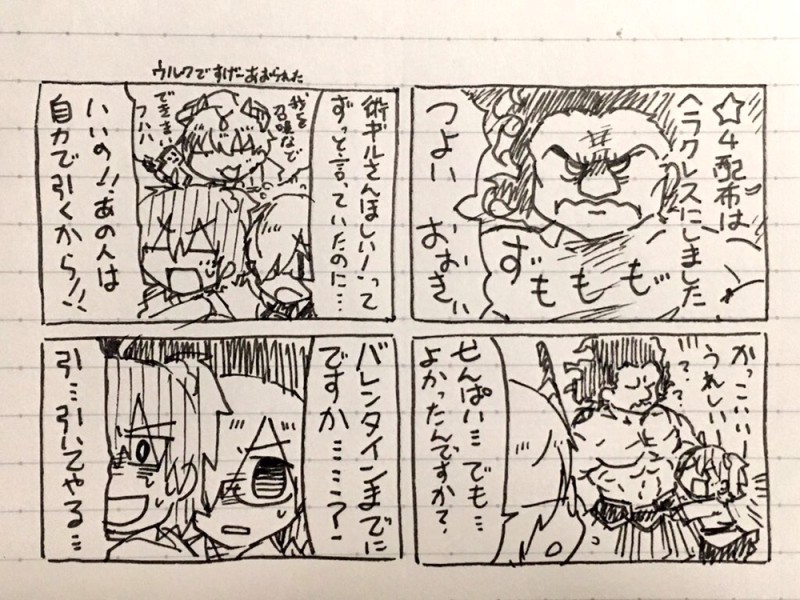 ☆4配布は
ヘラクレスにしました
つよい
おおきい
ずももも
かっこいいー
うれしいー
??
せんぱい…でも…
よかったんですか?
ウルクですげーあおられた
術ギルさんほしい!って
ずっと言っていたのに…
我を
召喚など
できまい
フハハ
いいの!!あの人は
自力で引くから!!
バレンタインまでに
ですか……?
引…引いてやる…